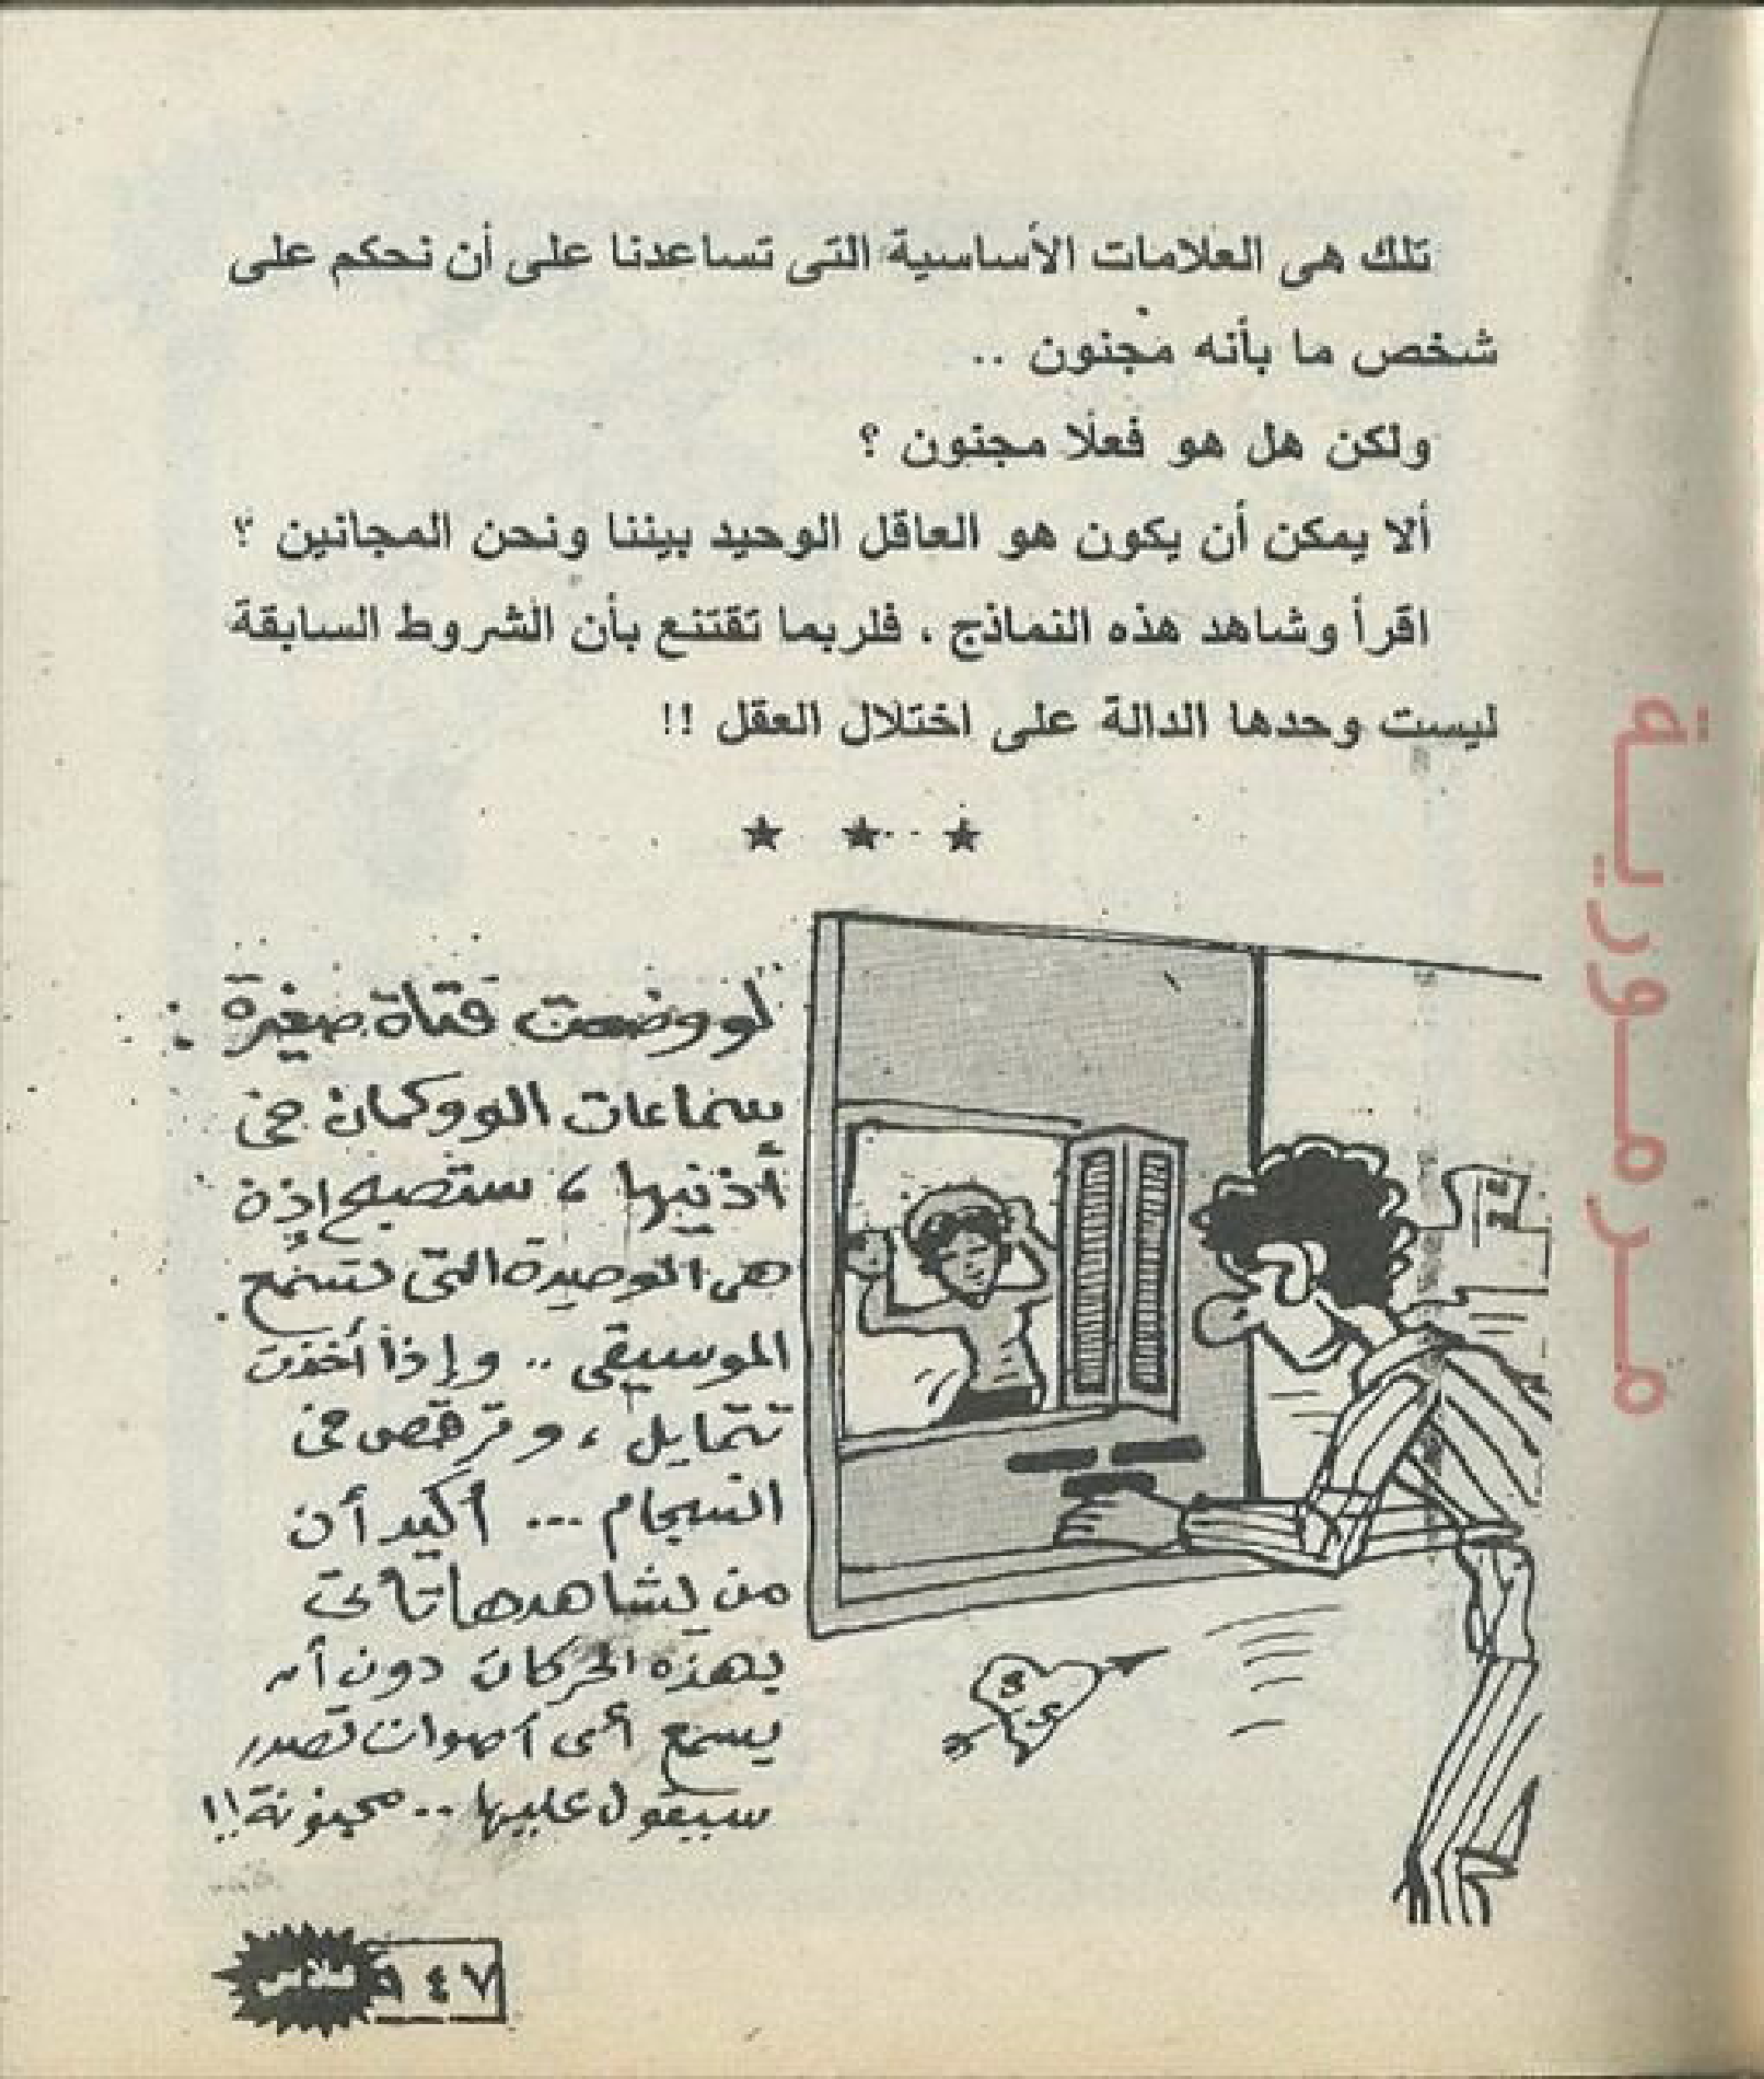 تلك هى العلامات الأساسية التى تساعدنا على أن نحكم على
شخص ما بأنه مجنون ..
ولكن هل هو فعلا مجنون ؟
ألا يمكن أن يكون هو العاقل الوحيد بيننا ونحن المجانين ؟
اقرأ وشاهد هذه النماذج ، فلربما تقتنع بأن الشروط السابقة
ليست وحدها الدالة على اختلال العقل !!
★ ★ ★
لو وضعت فتاة صغيرة
سماعات الووكمان فى
أذنيها ، ستصبح إذن
هى الوحيدة التى تسمع
الموسيقى .. وإذا أخذت
تتمايل ، وترقص فى
انسجام ... أكيد أن
من يشاهدها تأتى
بهذه الحركات دون أن
يسمع أى أصوات تصدر
سيقول عليها .. مجنونة !!
٤٧
مرمورية